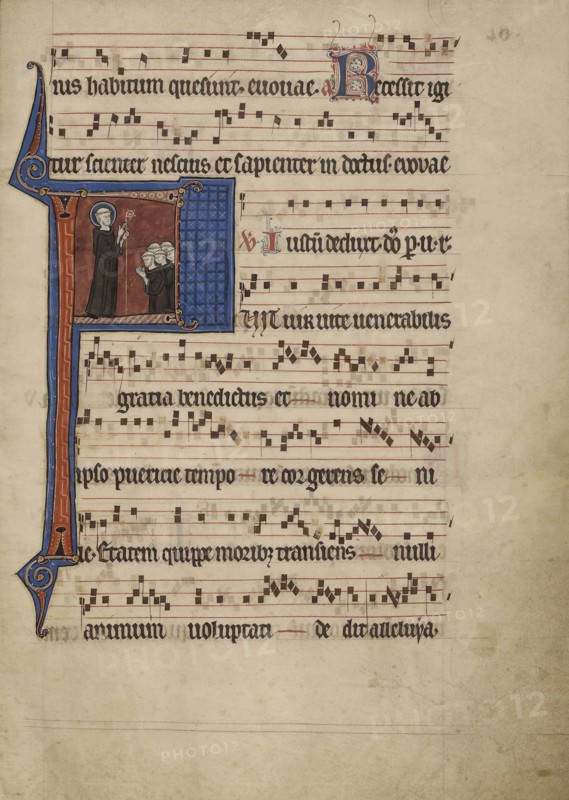 nis habitum quesiuit. euouae. Recessit igi
tur scienter nescius et sapienter in doctus. evovae
Iustū deduxit dō p. u. r.
FUIT uir uite uenerabilis
gratia benedictus et nomi ne ab
ipso puericie tempo re cor gerens se ni
le. Etatem quippe moribȝ transiens nulli
animum uoluptati de dit alleluya.
PHOTO12